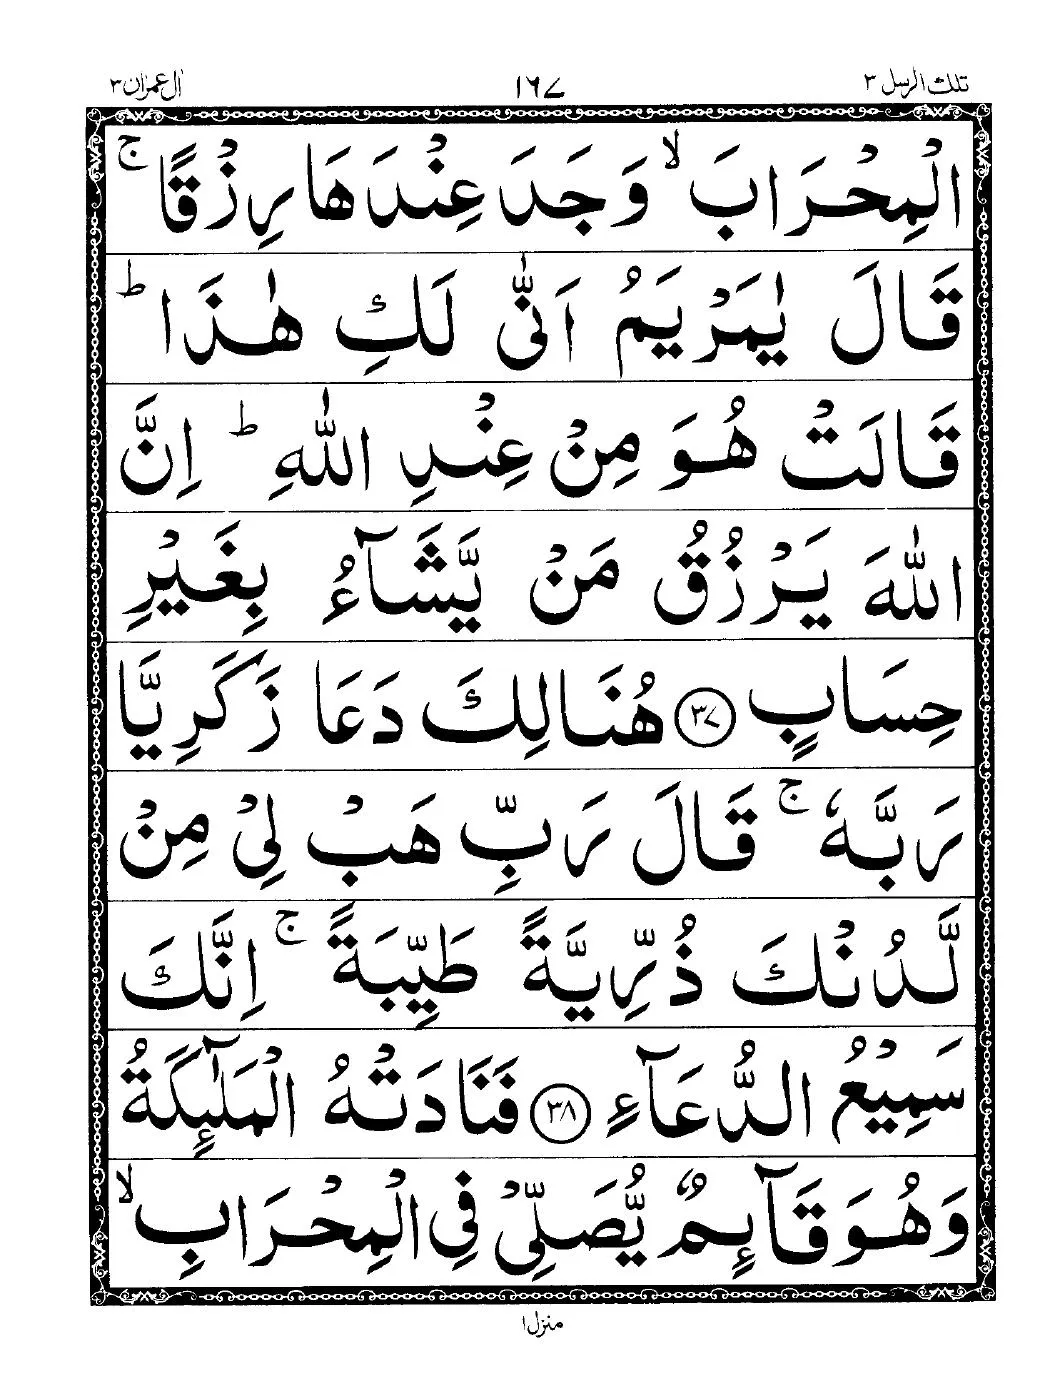 تلك الرسل ٣ ١٦٧ اٰل عمرٰن ٣
الْمِحْرَابَ ۙ وَجَدَ عِنْدَهَا رِزْقًا ۚ
قَالَ يٰمَرْيَمُ اَنّٰى لَكِ هٰذَا ؕ
قَالَتْ هُوَ مِنْ عِنْدِ اللّٰهِ ؕ اِنَّ
اللّٰهَ يَرْزُقُ مَنْ يَّشَآءُ بِغَيْرِ
حِسَابٍ ﴿٣٧﴾ هُنَالِكَ دَعَا زَكَرِيَّا
رَبَّهٗ ۚ قَالَ رَبِّ هَبْ لِیْ مِنْ
لَّدُنْكَ ذُرِّيَّةً طَيِّبَةً ۚ اِنَّكَ
سَمِيْعُ الدُّعَآءِ ﴿٣٨﴾ فَنَادَتْهُ الْمَلٰٓئِكَةُ
وَهُوَ قَآئِمٌ يُّصَلِّیْ فِی الْمِحْرَابِ ۙ
منزل ١